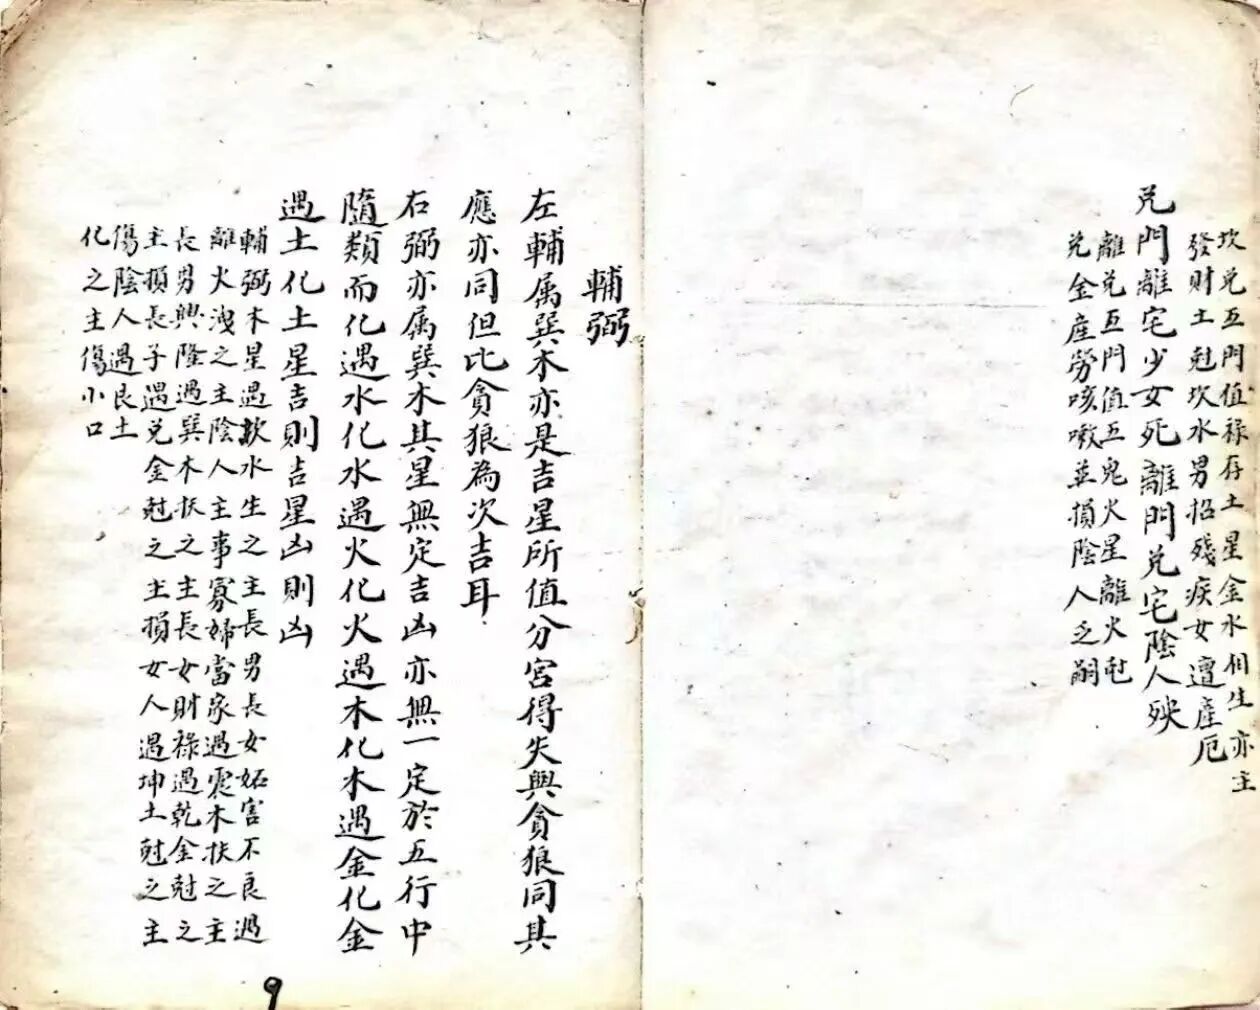 坎兑互門值祿存土星金水相生亦主
發財土尅坎水男招殘疾女遭產厄
兑門離宅少女死離門兑宅陰人殃
離兑互門值五鬼火星離火尅
兑金産勞咳嗽並損陰人乏嗣
輔弼
左輔属巽木亦是吉星所值分宮得失與貪狼同其
應亦同但比貪狼為次吉耳
右弼亦属巽木其星無定吉凶亦無一定於五行中
隨類而化遇水化水遇火化火遇木化木遇金化金
遇土化土星吉則吉星凶則凶
輔弼木星遇坎水生之主長男長女妬害不良遇
離火洩之主陰人主事寡婦當家遇震木扶之主
長男興隆遇巽木扶之主長女財祿遇乾金尅之
主損長子遇兑金尅之主損女人遇坤土尅之主
傷陰人遇艮土
化之主傷小口
9